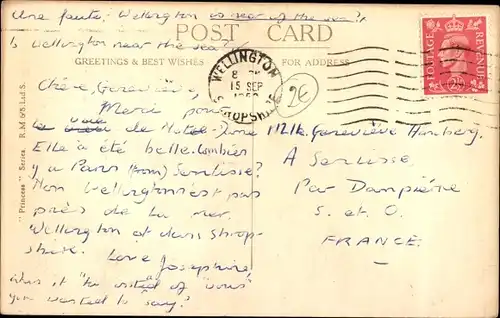 Une faute: Wellington is near of the sea?
Is Wellington near the sea?
POST CARD
GREETINGS & BEST WISHES
FOR ADDRESS
WELLINGTON
15 SEP
SHROPSHIRE
POSTAGE REVENUE
2½
2€
"Princess" Series. R.M & S.Ltd.
Chère Geneviève,
Merci pour
la de Notre-Dame
Elle a été belle. Combien
y a Paris (from) Senlisse?
Non Wellington n'est pas
près de la mer.
Wellington est dans Shrop-
shire. Love
Josephine
was it "he visited" or "vous"
you wanted to say?
Mlle. Geneviève
A Senlisse
Par Dampierre
S. et O.
FRANCE